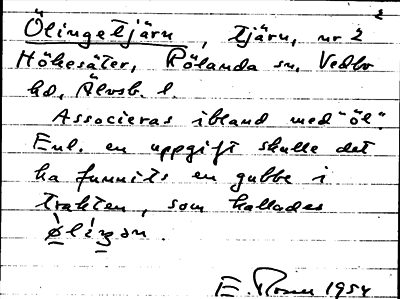 2
Ölingetjärn, tjärn, nr 2
Hökesäter, Rölanda sn, Vedbo
hd, Älvsb. l.
Associeras ibland med "öl".
Enl. en uppgift skulle det
ha funnits en gubbe i
trakten, som kallades
E. 1954